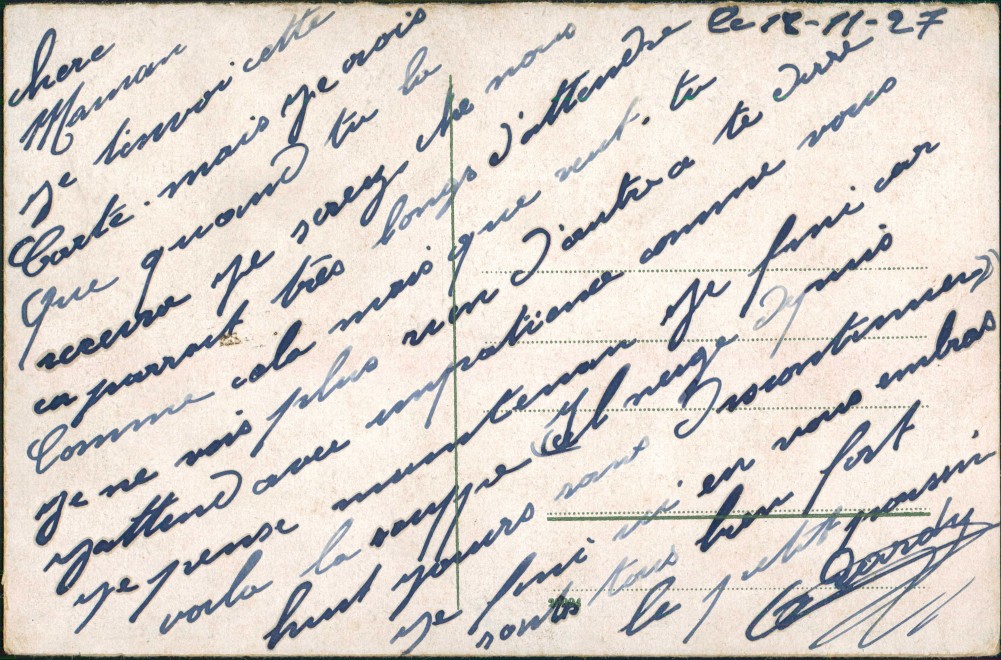 le 18-11-27
chere
Maman
Je t'envoi cette
Carte. mais je crois
Que quand tu la
recevra je serez che nous
ca parrait très longs d'attendre
Comme cela mais que veut. tu
je ne vois plus rien d'autre a te dirre
j'attend avec impatience comme vous
je pense maintenan je fini car
voila la souppe Il neige depuis
huit jours sans Discontinuer
je fini ici en vous embras
sants tous bien fort
le petit poussin
Dardy